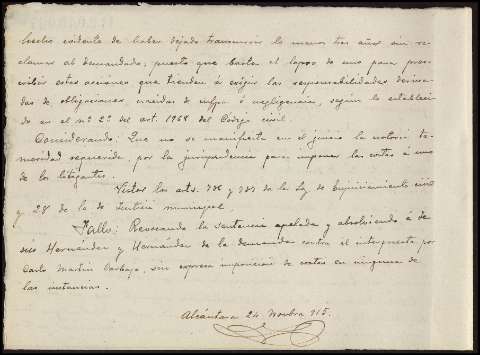 hecho evidente de haber dejado transcurrir lo menos tres años sin re-
clamar al demandado; puesto que basta el lapso de uno para pres-
cribir estas acciones que tienden á exigir las responsabilidades deriva-
das de obligaciones nacidas de culpa ó negligencia, según lo estableci-
do en el nº 2º del art. 1968 del Código civil.
Considerando: Que no se manifiesta en el juicio la notoria te-
meridad requerida por la jurisprudencia para imponer las costas á uno
de los litigantes.
Vistos los arts. y de la Ley de Enjuiciamiento civil
y 28 de la de Justicia municipal.
Fallo: Revocando la sentencia apelada y absolviendo á
Hernández y Hernández de la demanda contra él interpuesta por
Carlo Martín Carbajo, sin expresa imposición de costas en ninguna de
las instancias.
Alcántara 24 Novbre 915.